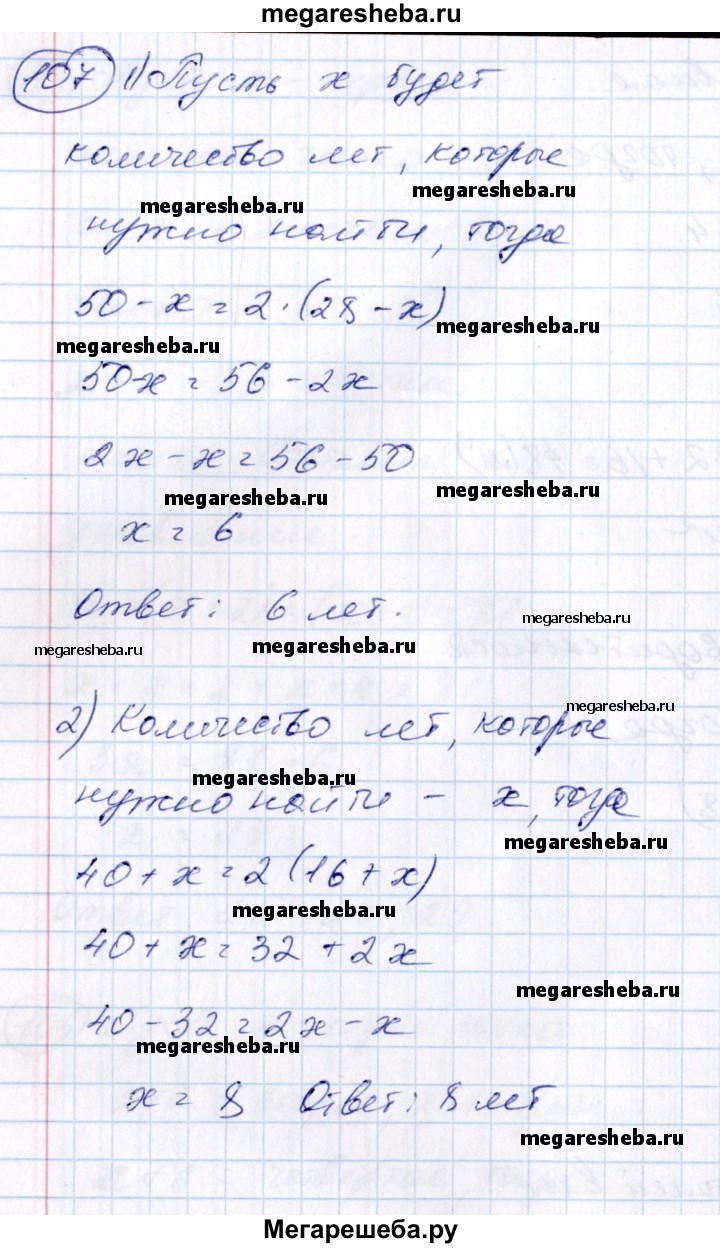 megaresheba.ru
107 1) Пусть x будет
количество лет, которые
megaresheba.ru
megaresheba.ru
нужно найти, тогда
50 - x = 2 · (28 - x)
megaresheba.ru
megaresheba.ru
50-x = 56 - 2x
2x - x = 56 - 50
megaresheba.ru
megaresheba.ru
x = 6
Ответ: 6 лет.
megaresheba.ru
megaresheba.ru
megaresheba.ru
megaresheba.ru
2) Количество лет, которые
megaresheba.ru
нужно найти - x, тогда
megaresheba.ru
40 + x = 2 (16 + x)
megaresheba.ru
40 + x = 32 + 2x
megaresheba.ru
40 - 32 = 2x - x
megaresheba.ru
x = 8 Ответ: 8 лет
megaresheba.ru
Мегарешеба.ру